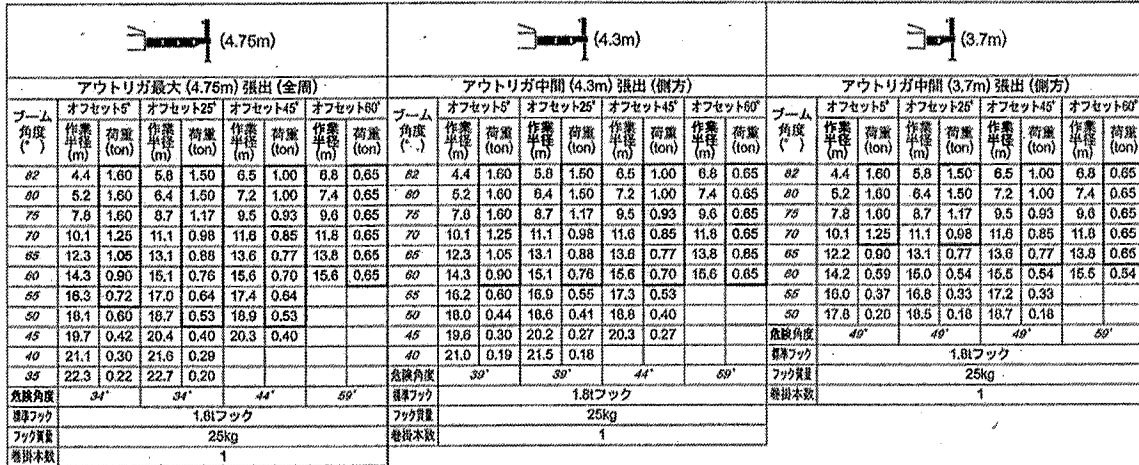 (4.75m)
アウトリガ最大 (4.75m) 張出 (全周)
ブーム角度(°) オフセット5° オフセット25° オフセット45° オフセット60°
作業半径(m) 荷重(ton) 作業半径(m) 荷重(ton) 作業半径(m) 荷重(ton) 作業半径(m) 荷重(ton)
82 4.4 1.60 5.8 1.50 6.5 1.00 6.8 0.65
80 5.2 1.60 6.4 1.50 7.2 1.00 7.4 0.65
75 7.8 1.60 8.7 1.17 9.5 0.93 9.6 0.65
70 10.1 1.25 11.1 0.98 11.6 0.85 11.8 0.65
65 12.3 1.05 13.1 0.88 13.6 0.77 13.8 0.65
60 14.3 0.90 15.1 0.76 15.6 0.70 15.6 0.65
55 16.3 0.72 17.0 0.64 17.4 0.64
50 18.1 0.60 18.7 0.53 18.9 0.53
45 19.7 0.42 20.4 0.40 20.3 0.40
40 21.1 0.30 21.6 0.29
35 22.3 0.22 22.7 0.20
危険角度 34° 34° 44° 59°
標準フック 1.8tフック
フック質量 25kg
巻掛本数 1
(4.3m)
アウトリガ中間 (4.3m) 張出 (側方)
ブーム角度(°) オフセット5° オフセット25° オフセット45° オフセット60°
作業半径(m) 荷重(ton) 作業半径(m) 荷重(ton) 作業半径(m) 荷重(ton) 作業半径(m) 荷重(ton)
82 4.4 1.60 5.8 1.50 6.5 1.00 6.8 0.65
80 5.2 1.60 6.4 1.50 7.2 1.00 7.4 0.65
75 7.8 1.60 8.7 1.17 9.5 0.93 9.6 0.65
70 10.1 1.25 11.1 0.98 11.6 0.85 11.8 0.65
65 12.3 1.05 13.1 0.88 13.6 0.77 13.8 0.65
60 14.3 0.90 15.1 0.76 15.6 0.70 15.6 0.65
55 16.2 0.60 16.9 0.55 17.3 0.53
50 18.0 0.44 18.6 0.41 18.8 0.40
45 19.6 0.30 20.2 0.27 20.3 0.27
40 21.0 0.19 21.5 0.18
危険角度 39° 39° 44° 59°
標準フック 1.8tフック
フック質量 25kg
巻掛本数 1
(3.7m)
アウトリガ中間 (3.7m) 張出 (側方)
ブーム角度(°) オフセット5° オフセット25° オフセット45° オフセット60°
作業半径(m) 荷重(ton) 作業半径(m) 荷重(ton) 作業半径(m) 荷重(ton) 作業半径(m) 荷重(ton)
82 4.4 1.60 5.8 1.50 6.5 1.00 6.8 0.65
80 5.2 1.60 6.4 1.50 7.2 1.00 7.4 0.65
75 7.8 1.60 8.7 1.17 9.5 0.93 9.6 0.65
70 10.1 1.25 11.1 0.98 11.6 0.85 11.8 0.65
65 12.2 0.90 13.1 0.77 13.6 0.77 13.8 0.65
60 14.2 0.59 15.0 0.54 15.5 0.54 15.5 0.54
55 16.0 0.37 16.8 0.33 17.2 0.33
50 17.8 0.20 18.5 0.18 18.7 0.18
危険角度 49° 49° 49° 59°
標準フック 1.8tフック
フック質量 25kg
巻掛本数 1